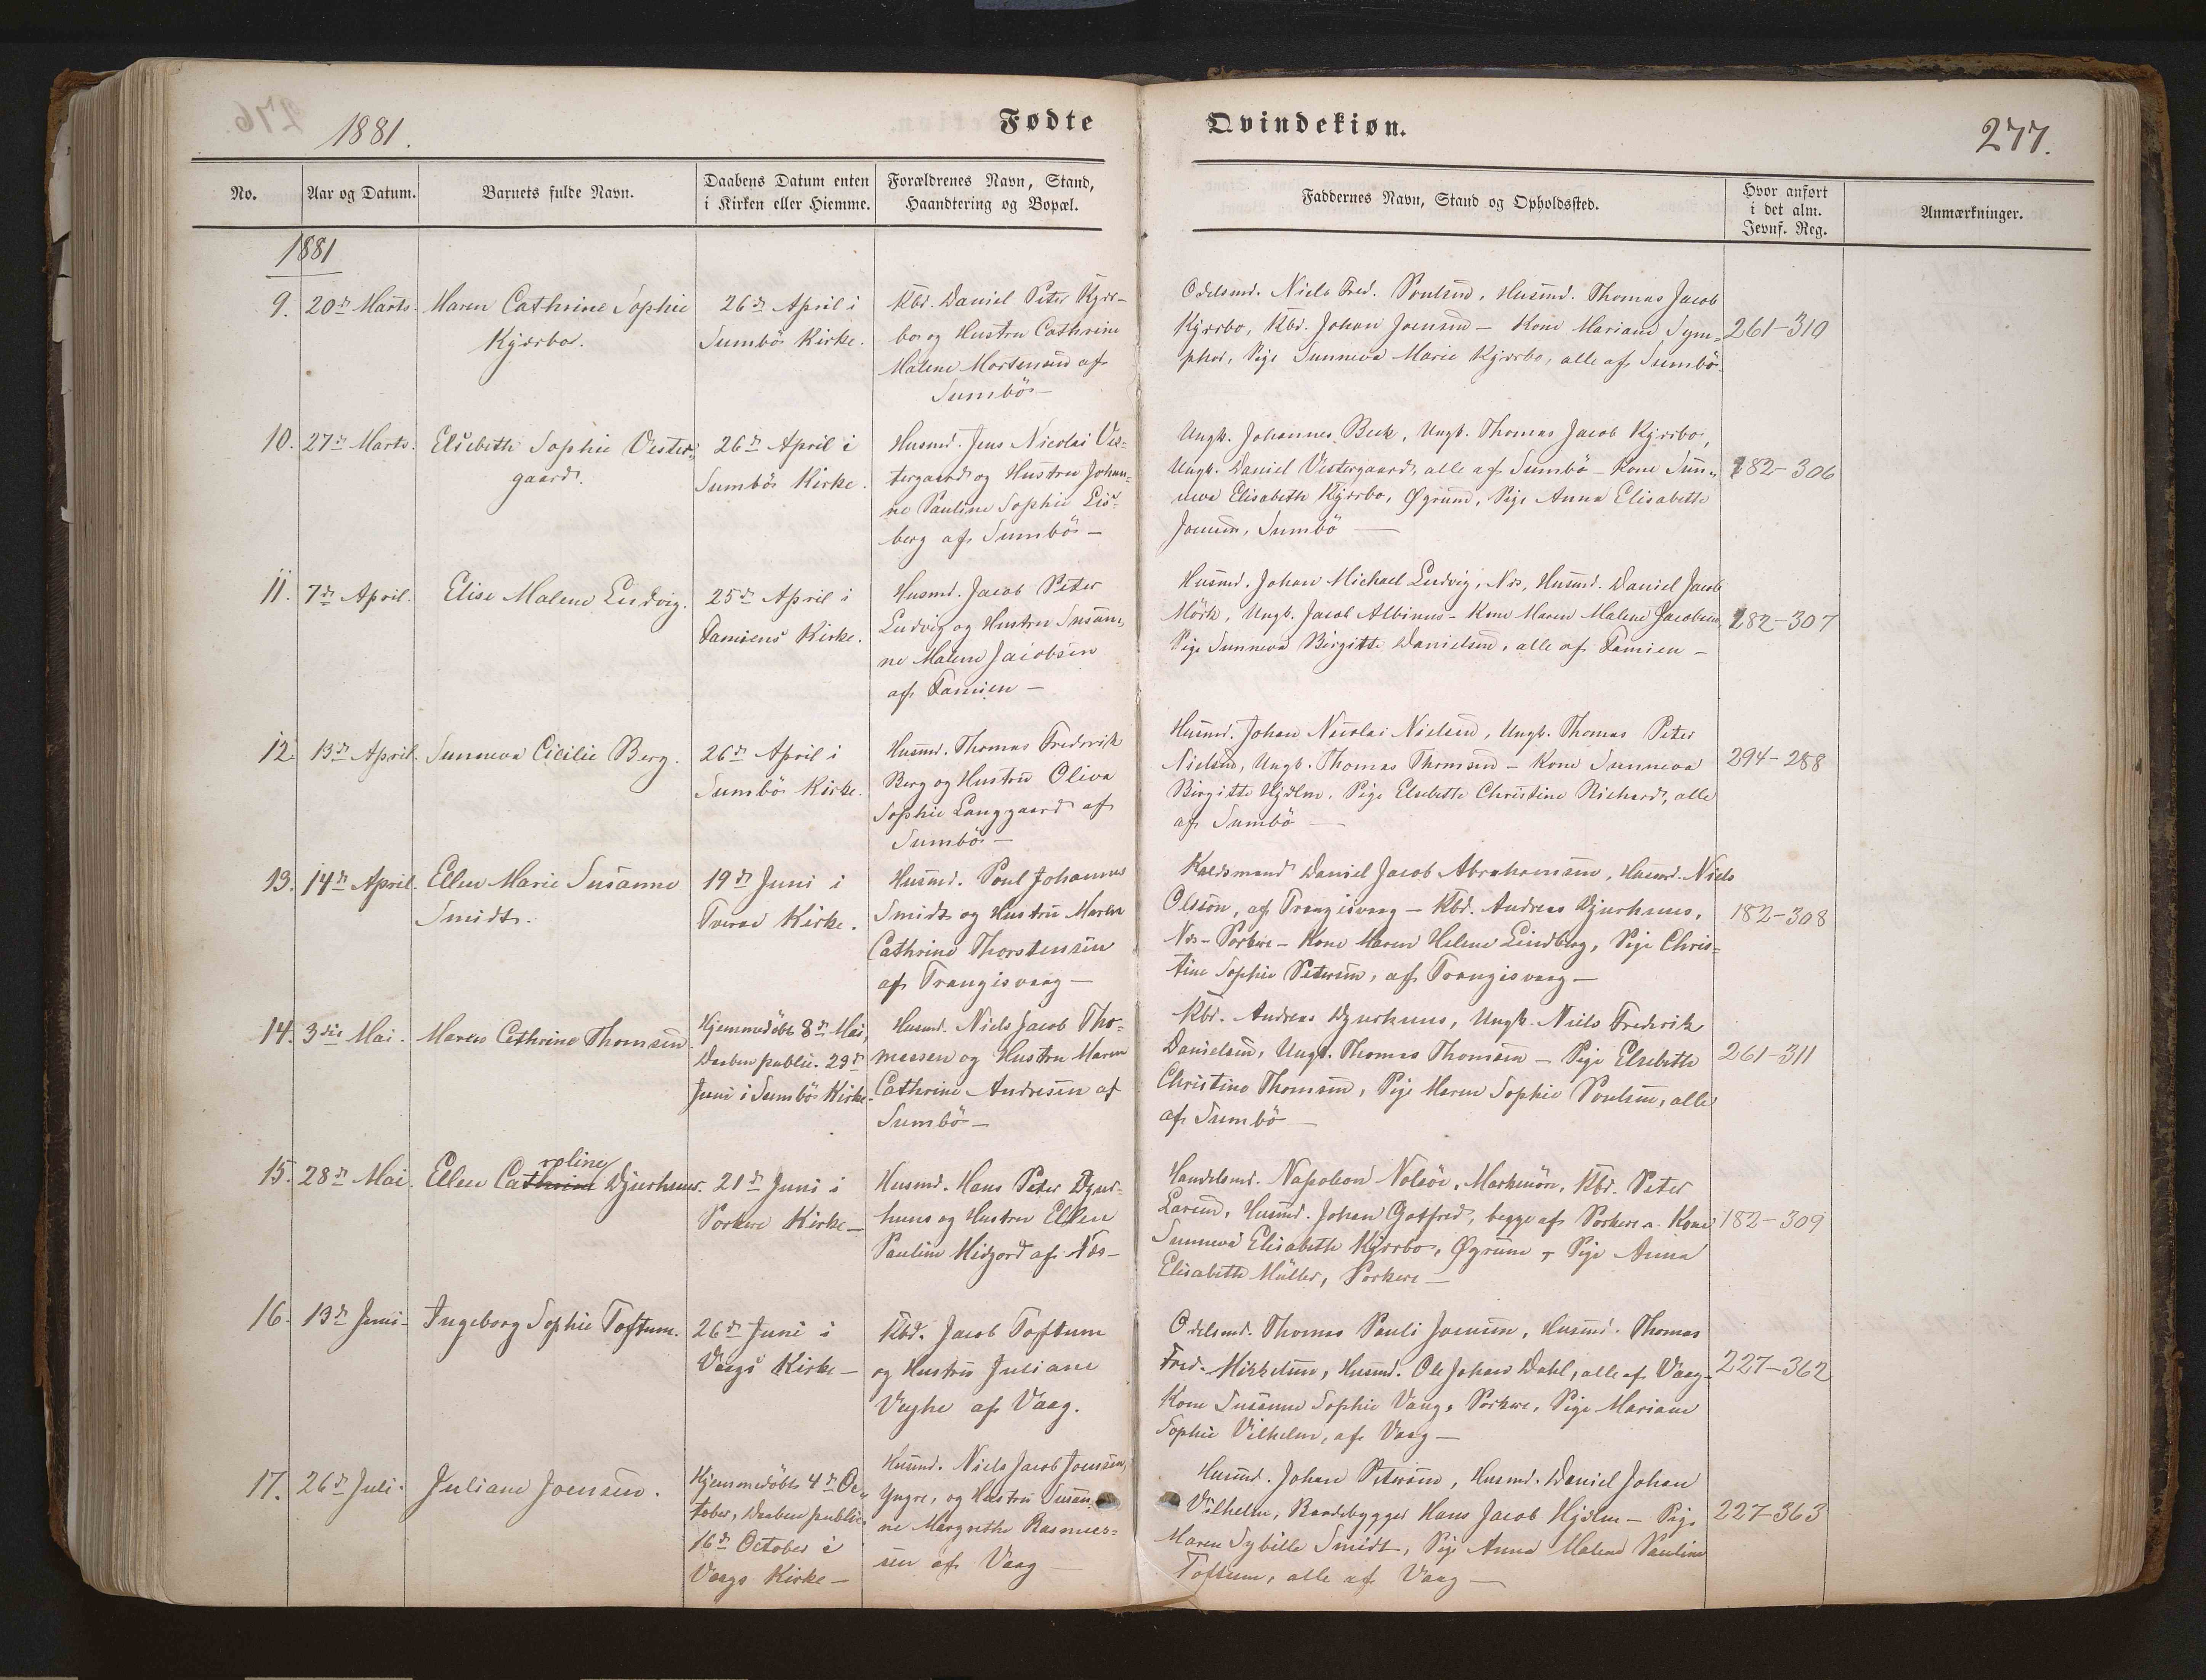 1881.
Fødte
Qvindekiøn.
277.
No.
Aar og Datum.
Barnets fulde Navn.
Daabens Datum enten
i Kirken eller Hiemme.
Forældrenes Navn, Stand,
Haandtering og Bopæl.
Faddernes Navn, Stand og Opholdssted.
Hvor anført
i det alm.
Jevnf. Reg.
Anmærkninger.
1881
9.
20de Marts.
Maren Cathrine Sophie
Kjærbo.
26de April i
Sumbö Kirke.
Kbd. Daniel Peter Kjær-
bo og Hustru Cathrine
Malene Mortensen af
Sumbö —
Odelsmd. Niels Fred. Poulsen, Husmd. Thomas Jacob
Kjærbo, Kbd. Johan Joensen — Kone Mariane Sym-
phor, Pige Sunneva Marie Kjærbo, alle af Sumbö.
261-310
10.
27de Marts.
Elsebeth Sophie Vester-
gaard.
26de April i
Sumbö Kirke.
Husmd. Jens Nicolai Ves-
tergaard og Hustru Johan-
ne Pauline Sophie Eis-
berg af Sumbö —
Ungk. Johannes Beck, Ungk. Thomas Jacob Kjærbo,
Ungk. Daniel Vestergaard, alle af Sumbö — Kone Sun-
neva Elisabeth Kjærbo, Øgrum, Pige Anna Elisabeth
Joensen, Sumbö —
182-306
11.
7de April.
Elise Malene Ludvig.
25de April i
Famiens Kirke.
Husmd. Jacob Peter
Ludvig og Hustru Susan-
ne Malene Jacobsen
af Famien —
Husmd. Johan Michael Ludvig, Næs, Husmd. Daniel Jacob
Mörk, Ungk. Jacob Albinus — Kone Maren Malene Jacobsen,
Pige Sunneva Birgitte Danielsen, alle af Famien —
182-307
12.
13de April.
Sunneva Cicilie Berg.
26de April i
Sumbö Kirke.
Husmd. Thomas Frederik
Berg og Hustru Oliva
Sophie Langgaard af
Sumbö —
Husmd. Johan Nicolai Nielsen, Ungk. Thomas Peter
Nielsen, Ungk. Thomas Thomsen — Kone Sunneva
Birgitte Hjelm, Pige Elsebeth Christine Richard, alle
af Sumbö —
294-288
13.
14de April.
Ellen Marie Susanne
Smidt.
19de Juni i
Tveraa Kirke.
Husmd. Poul Johannes
Smidt og Hustru Maren
Cathrine Thorstensen
af Trangisvaag —
Daniel Jacob Abrahamsen, Husmd. Niels
Olsen, af Trangisvaag — Kbd. Andreas Djurhuus,
Næs — Porkere — Kone Maren Helene Lindberg, Pige Chris-
tine Sophie Petersen, af Trangisvaag —
182-308
14.
3die Mai.
Maren Cathrine Thomsen
Hjemmedöbt 8de Mai,
Daaben public. 29de
Juni i Sumbö Kirke.
Husmd. Niels Jacob Tho-
massen og Hustru Maren
Cathrine Andresen af
Sumbö —
Kbd. Andreas Djurhuus, Ungk. Niels Frederik
Danielsen, Ungk. Thomas Thomsen — Pige Elsebeth
Christine Thomsen, Pige Maren Sophie Poulsen, alle
af Sumbö —
261-311
15.
28de Mai.
roline
Ellen Cathrine Djurhuus.
21de Juni i
Porkere Kirke —
Husmd. Hans Peter Djur-
huus og Hustru Ellen
Pauline Midjord af Næs —
Handelsmd. Napoleon Nolsöe, Markenöre, Kbd. Peter
Larsen, Husmd. Johan Gotfred, begge af Porkere — Kone
Sunneva Elisabeth Kjærbo, Øgrum, Pige Anna
Elisabeth Müller, Porkere —
182-309
16.
13de Juni.
Ingeborg Sophie Toftum.
26de Juni i
Vaags Kirke —
Kbd. Jacob Toftum
og Hustru Juliane
Veyhe af Vaag.
Odelsmd. Thomas Pauli Joensen, Husmd. Thomas
Fred. Mikkelsen, Husmd. Ole Johan Dahl, alle af Vaag —
Kone Susanne Sophie Vang, Porkere, Pige Mariane
Sophie Vilhelm, af Vaag —
227-362
17.
26de Juli.
Juliane Joensen.
Hjemmedöbt 4de Oc-
tober, Daaben public.
16de October i
Vaags Kirke —
Husmd. Niels Jacob Joensen,
Yngre, og Hustru Susan-
ne Margrethe Rasmus-
sen af Vaag —
Husmd. Johan Petersen, Husmd. Daniel Johan
Vilhelm, Baadebygger Hans Jacob Hjelm — Pige
Maren Sybille Smidt, Pige Anna Malene Pauline
Toftum, alle af Vaag —
227-363